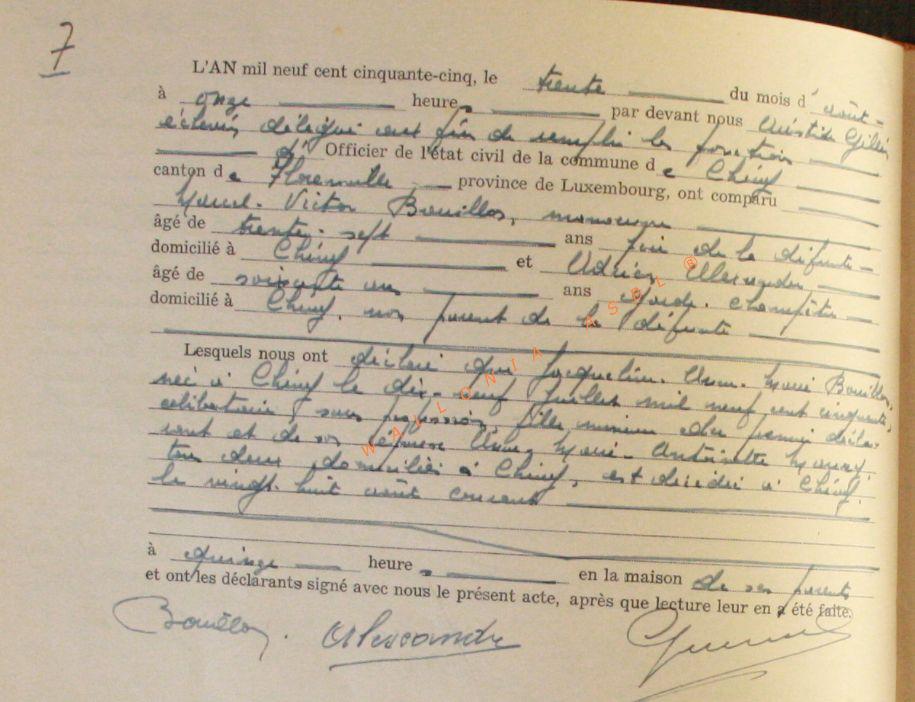 7
L'AN mil neuf cent cinquante-cinq, le trente du mois d'août
à onze heures par devant nous
échevin délégué aux fins de remplir les fonctions
d' Officier de l'état civil de la commune de Chiny
canton de Florenville province de Luxembourg, ont comparu
Marcel. Victor Bouillon, manoeuvre
âgé de trente-sept ans père de la défunte
domicilié à Chiny et Adrien Alexandre
âgé de soixante ans garde-champêtre
domicilié à Chiny, non parent de la défunte
Lesquels nous ont déclaré que Jacqueline. Anne. Marie Bouillon,
née à Chiny le dix-neuf juillet mil neuf cent cinquante,
célibataire, sans profession, fille mineure du premier décla-
rant et de son épouse Marie-Antoinette
tous deux domiciliés à Chiny, est décédée à Chiny,
le vingt-huit août courant
à quinze heures en la maison de ses parents
et ont les déclarants signé avec nous le présent acte, après que lecture leur en a été faite.
Bouillon. Alexandre
WALLONIA ASBL ®